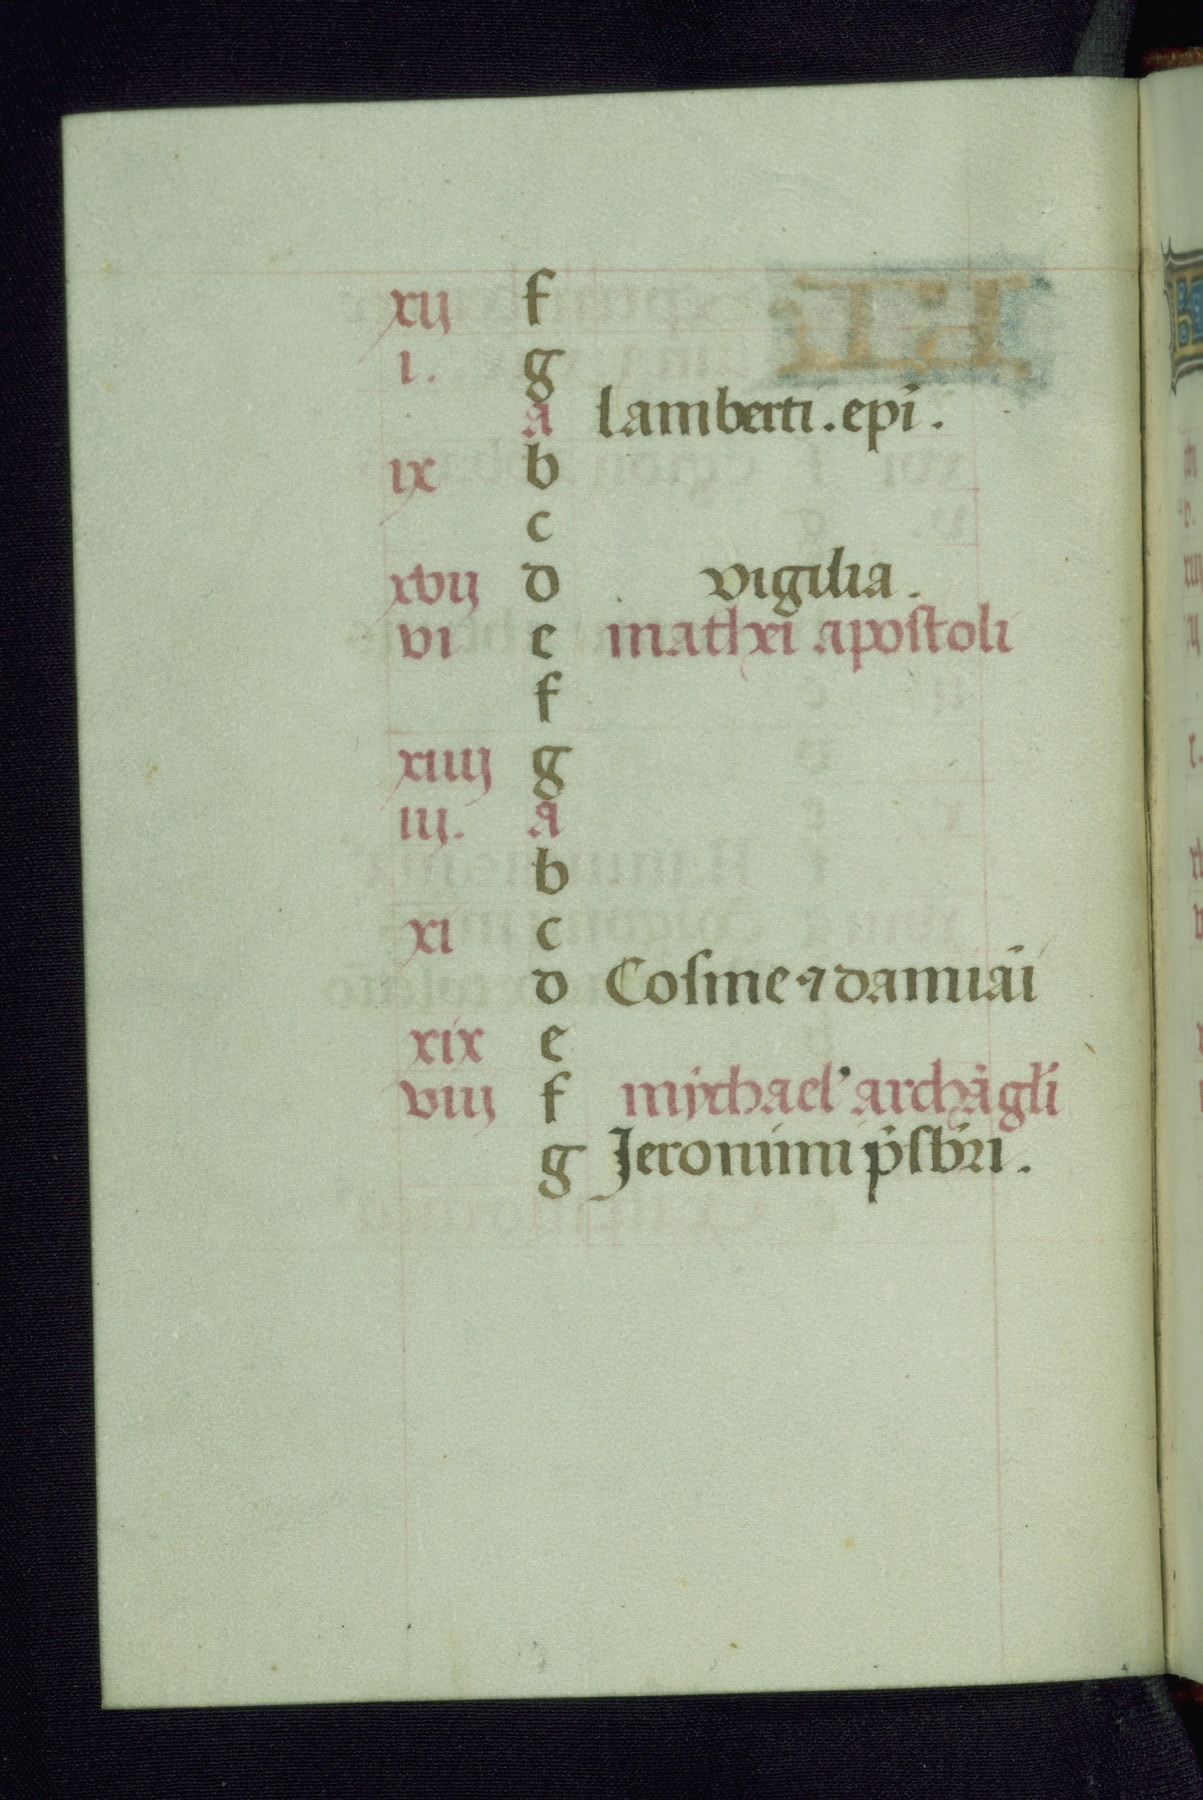 xij f
i. g
a lamberti. epī.
ix b
c
xvij d vigilia.
vi e mathei apostoli
f
xiiij g
iij. a
b
xi c
d Cosme ⁊ damiāi
xix e
viij f mychael' archāgl'i
g Jeronimi p̄sbr̄i.